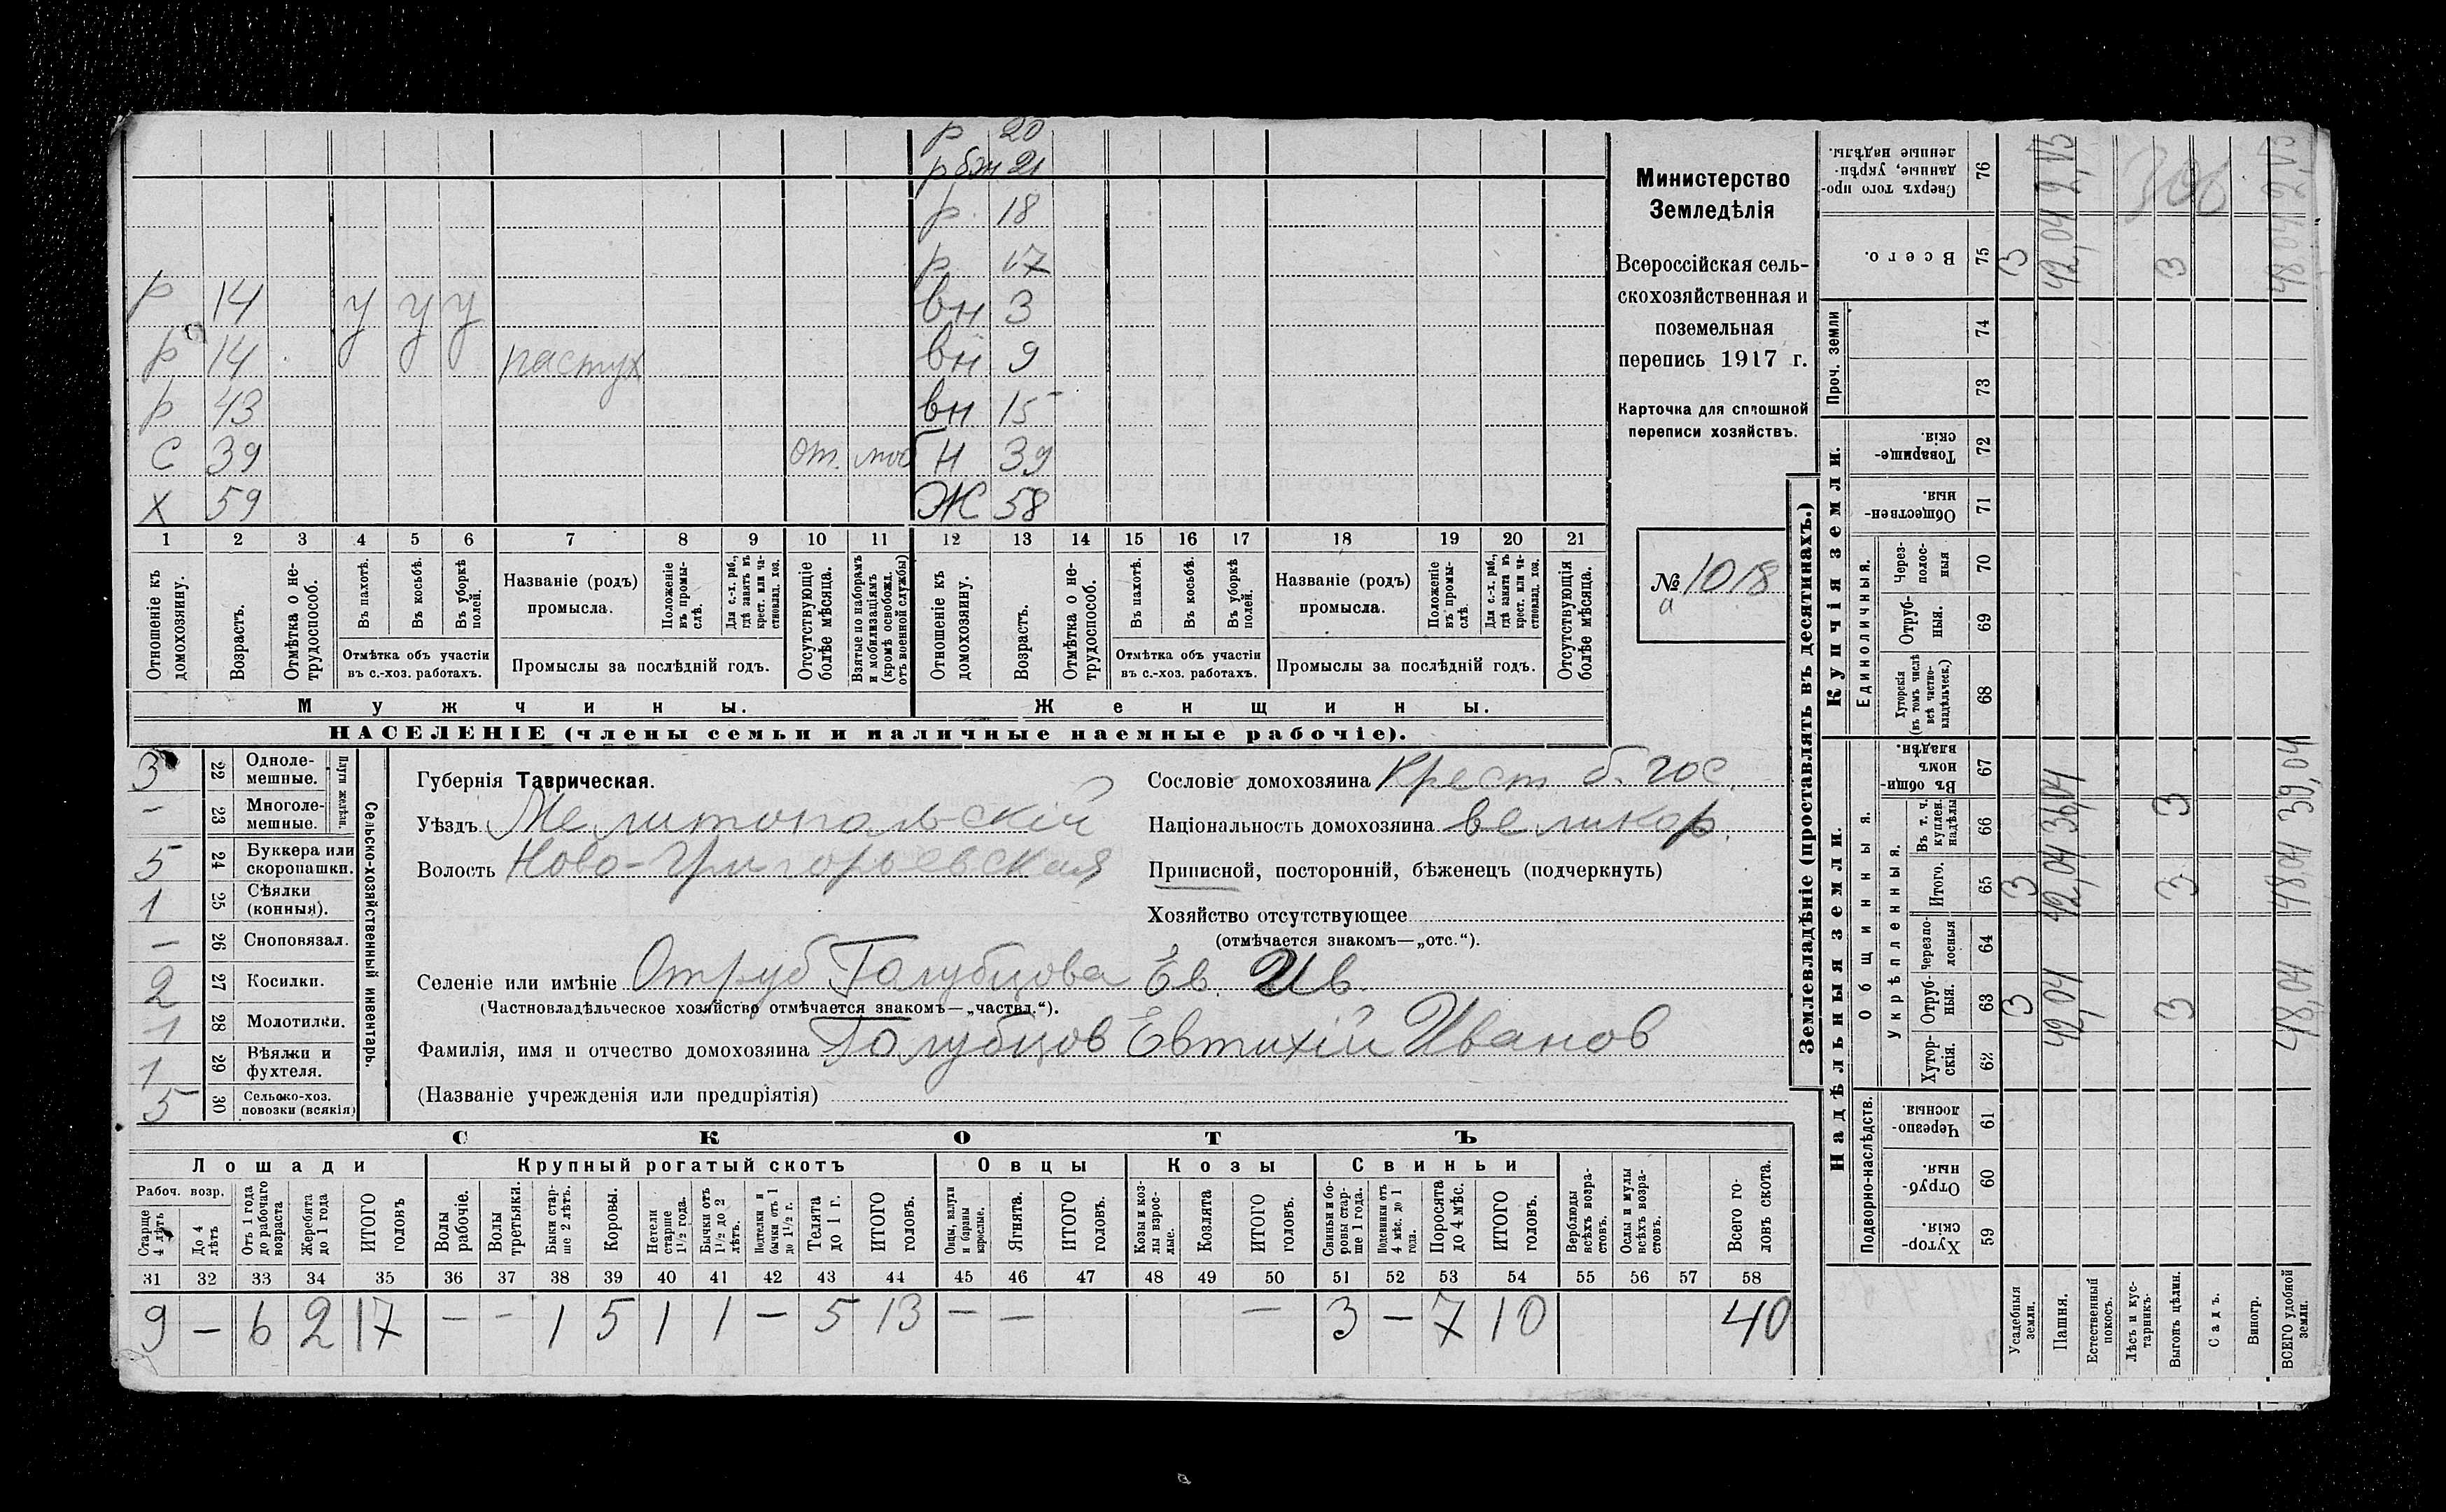 р 20
рбж 21
р. 18
р 17
р 14 у у у вн 3
р 14 пастух вн 9
р 43 вн 15
С 39 от. моб Н 39
Х 59 Ж 58
1 2 3 4 5 6 7 8 9 10 11 12 13 14 15 16 17 18 19 20 21
Отношеніе къ домохозяину.
Возрастъ.
Отмѣтка о не-трудоспособ.
Въ пахотѣ.
Въ косьбѣ.
Въ уборкѣ полей.
Отмѣтка объ участіи въ с.-хоз. работахъ.
Названіе (родъ) промысла.
Положеніе въ промы-слѣ.
Для с.-х. раб., гдѣ занятъ въ крест. или ча-стновлад. хоз.
Промыслы за послѣдній годъ.
Отсутствующіе болѣе мѣсяца.
Взятые по наборамъ и мобилизаціямъ (кромѣ освобожд. отъ военной службы)
Отношеніе къ домохозяину.
Возрастъ.
Отмѣтка о не-трудоспособ.
Въ пахотѣ.
Въ косьбѣ.
Въ уборкѣ полей.
Отмѣтка объ участіи въ с.-хоз. работахъ.
Названіе (родъ) промысла.
Положеніе въ промы-слѣ.
Для с.-х. раб., гдѣ занята въ крест. или ча-стновлад. хоз.
Промыслы за послѣдній годъ.
Отсутствующія болѣе мѣсяца.
Мужчины. Женщины.
НАСЕЛЕНІЕ (члены семьи и наличные наемные рабочіе).
Министерство
Земледѣлія
Всероссійская сель-
скохозяйственная и
поземельная
перепись 1917 г.
Карточка для сплошной
переписи хозяйствъ.
№ 1018
а
3 22 Одноле-мешные.
– 23 Многоле-мешные.
Плуги желѣзн.
5 24 Буккера или скоропашки.
1 25 Сѣялки (конныя).
– 26 Сноповязал.
2 27 Косилки.
1 28 Молотилки.
1 29 Вѣялки и фухтеля.
5 30 Сельско-хоз. повозки (всякія)
Сельско-хозяйственный инвентарь.
Губернія Таврическая.
Уѣздъ Мелитопольскій
Волость Ново-Григорьевская
Сословіе домохозяина Крест. б. гос.
Національность домохозяина великор.
Приписной, посторонній, бѣженецъ (подчеркнуть)
Хозяйство отсутствующее
(отмѣчается знакомъ—„отс.“).
Селеніе или имѣніе Отруб Голубцова Ев. Ив.
(Частновладѣльческое хозяйство отмѣчается знакомъ—„частвл.“).
Фамилія, имя и отчество домохозяина Голубцов Евтихій Иванов
(Названіе учрежденія или предпріятія)
СКОТЪ
Лошади Крупный рогатый скотъ Овцы Козы Свиньи
Рабоч. возр.
Старше 4 лѣтъ
До 4 лѣтъ
Отъ 1 года до рабочаго возраста
Жеребята до 1 года
ИТОГО головъ
Волы рабочіе.
Волы третьяки.
Быки стар-ше 2 лѣтъ.
Коровы.
Нетели старше 1½ года.
Бычки отъ 1½ до 2 лѣтъ.
Подтелки и бычки отъ 1 до 1½ г.
Телята до 1 г.
ИТОГО головъ.
Овцы, валухи и бараны взрослые.
Ягнята.
ИТОГО головъ.
Козы и коз-лы взрос-лые.
Козлята
ИТОГО головъ.
Свиньи и бо-ровы стар-ше 1 года.
Подсвинки отъ 4 мѣс. до 1 года.
Поросята до 4 мѣс.
ИТОГО головъ.
Верблюды всѣхъ возра-стовъ.
Ослы и мулы всѣхъ возра-стовъ.
Всего го-ловъ скота.
31 32 33 34 35 36 37 38 39 40 41 42 43 44 45 46 47 48 49 50 51 52 53 54 55 56 57 58
9 – 6 2 17 – – 1 5 1 1 – 5 13 – – – 3 – 7 10 40
Землевладѣніе (проставлять въ десятинахъ.)
Надѣльныя земли.
Подворно-наслѣдств.
Хутор-скія. 59
Отруб-ныя. 60
Черезпо-лосныя. 61
Общинныя.
Укрѣпленныя.
Хутор-скія. 62
Отруб-ныя. 63
Черезпо-лосныя 64
Итого. 65
Въ т. ч. куплен. надѣлы 66
Въ общин-номъ владѣн. 67
Купчія земли.
Единоличныя.
Хуторскія (въ томъ числѣ всѣ частно-владѣльческ.) 68
Отруб-ныя. 69
Через-полос-ныя 70
Обществен-ныя. 71
Товарище-скія. 72
Проч. земли
73
74
Всего. 75
Сверхъ того про-данные, укрѣп-ленные надѣлы. 76
Усадебныя земли. 3 3 3
Пашня. 42,04 42,04 36,04 42,04 2,13
Естественный покосъ.
Лѣсъ и кус-тарникъ.
Выгонъ цѣлин. 3 3 3 3
Садъ.
Виногр.
ВСЕГО удобной земли. 48,04 48,04 39,04 48,04 2,13
306